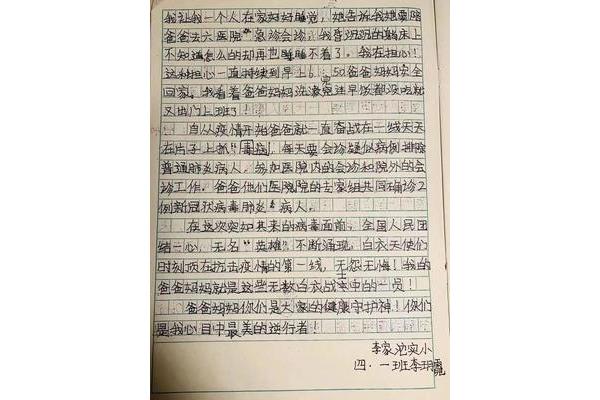 我让我一个人在家好好睡觉，她告诉我她要陪
爸爸去六医院"急诊会诊，我昏沉沉的躺床上
不知道怎么的却再也睡不着了。我在担心！
这种担心一直持续到早上6：50爸爸妈妈安全
回家。我看着爸爸妈妈洗漱完连早饭都没吃就
又出门上班了！
自从疫情开始爸爸就一直奋战在一线天天
在片子上抓"毒瘤，每天要会诊疑似病例排除
普通肺炎病人。参加医院内的会诊和院外的会
诊工作。爸爸他们医院的专家组共同确诊2
例新冠状病毒肺炎"病人。
在这次突如其来的病毒面前，全国人民团
结一心，无名"英雄"不断涌现，白衣天使们
时刻顶在抗击疫情的第一线，无怨无悔！我的
爸爸妈妈就是这些无数白衣战士中的一员！
爸爸妈妈你们是大家的健康守护神！你们
是我心目中最美的逆行者！
李家沱实小
四·一班李玥霓